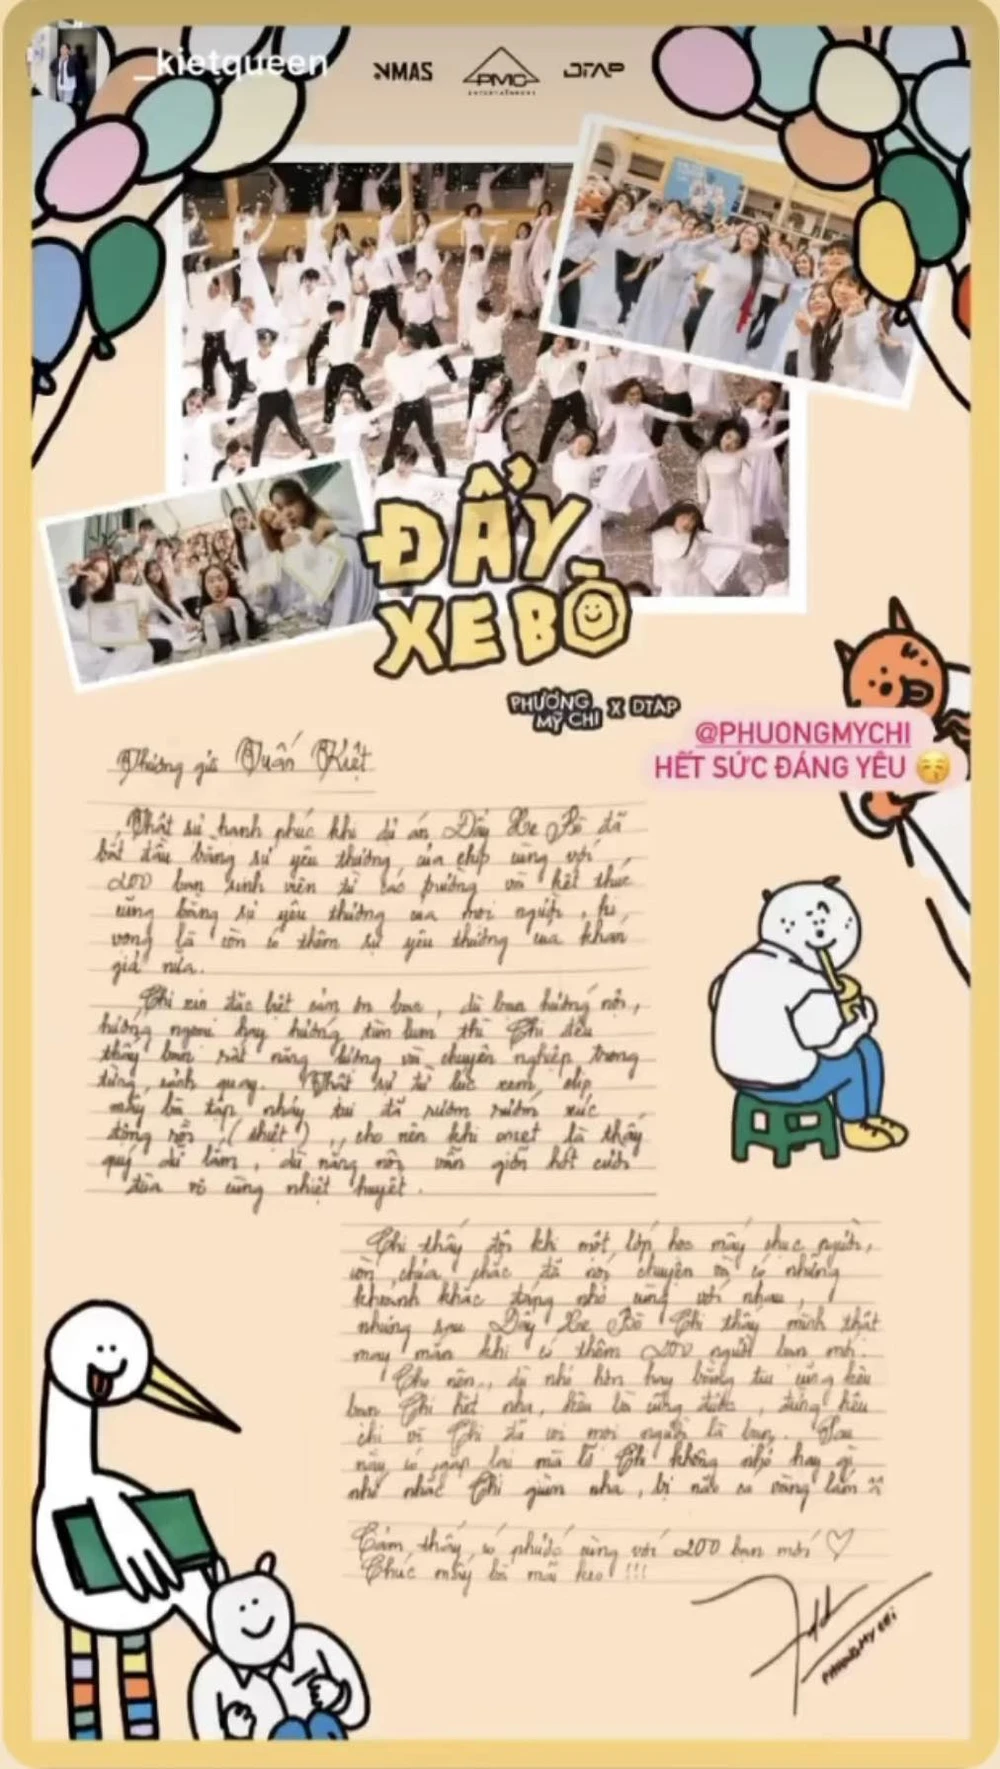 _kietqueen
NMAS
PMC
ENTERTAINMENT
DTAP
ĐẨY
XE BÒ
PHƯƠNG MỸ CHI X DTAP
@PHUONGMYCHI
HẾT SỨC ĐÁNG YÊU 😚
Thương gửi Tuấn Kiệt
Thật sự hạnh phúc khi dự án Đẩy Xe Bò đã
bắt đầu bằng sự yêu thương của ekip cùng với
200 bạn sinh viên từ các trường và kết thúc
cũng bằng sự yêu thương của mọi người, hi
vọng là còn có thêm sự yêu thương của khán
giả nữa.
Chi xin đặc biệt cảm ơn bạn, dù bạn hướng nội,
hướng ngoại hay hướng tùm lum thì Chi đều
thấy bạn rất năng lượng và chuyên nghiệp trong
từng cảnh quay. Thật sự từ lúc xem clip
mấy bà tập nhảy tui đã rươm rướm xúc
động rồi (thiệt), cho nên khi onset là thấy
quý dữ lắm, dù nắng nôi vẫn giỡn hớt cười
đùa vô cùng nhiệt huyết.
Chi thấy đôi khi một lớp học mấy chục người,
còn chưa chắc đã nói chuyện và có những
khoảnh khắc đáng nhớ cùng với nhau,
nhưng sau Đẩy Xe Bò Chi thấy mình thật
may mắn khi có thêm 200 người bạn mới.
Cho nên, dù nhỏ hơn hay bằng tui cũng kêu
bạn Chi hết nha, kêu bà cũng được, đừng kêu
chị vì Chi đã coi mọi người là bạn. Sau
này có gặp lại mà lỡ Chi không nhớ hay gì
nhớ nhắc Chi giùm nha, bị não cá vàng lắm ^^
Cảm thấy có phước cùng với 200 bạn mới ♡
Chúc mấy bà mãi keo !!!
PHUONG MY CHI